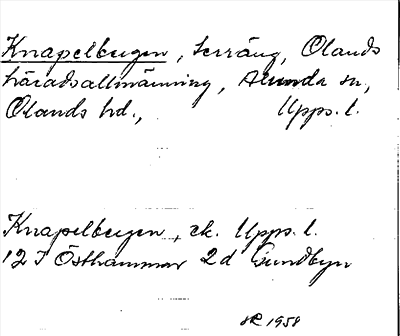 Knapelbergen, terräng, Olands
häradsallmänning, Alunda sn,
Olands hd., Upps. l.
Knapelbergen, ek. Upps. l.
12 I Östhammar 2d Sundbyn
1958